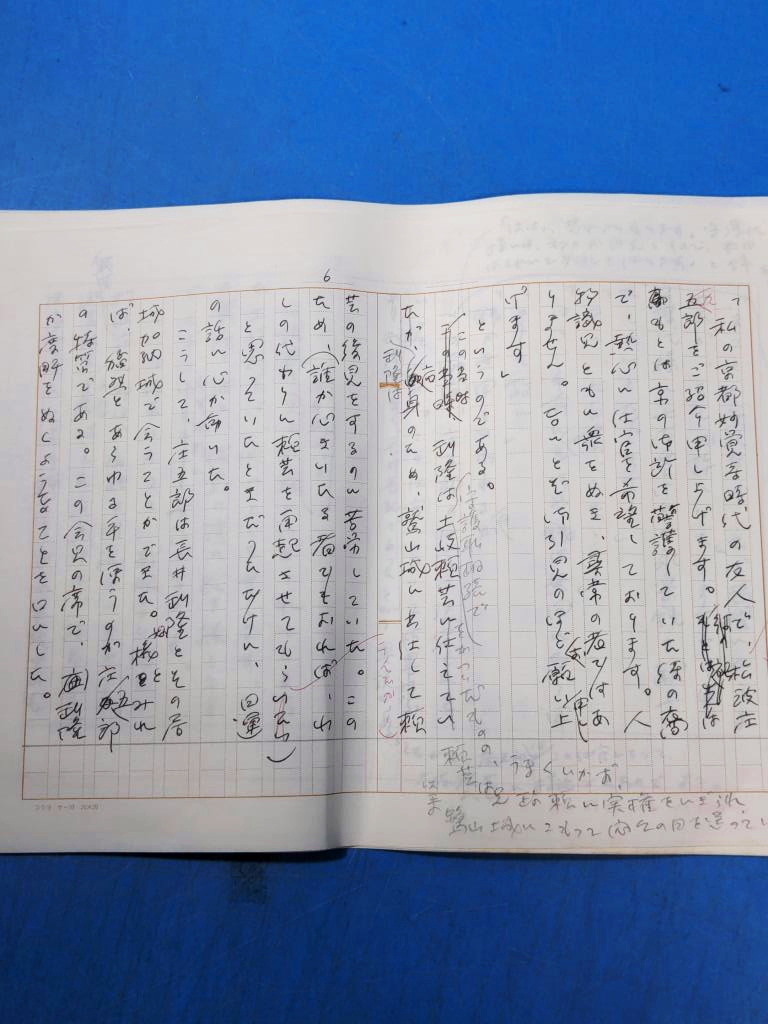 6
て私の京都妙覚寺時代の友人で、松波庄
五郎をご紹介申し上げます。
もとは京の御所を警護していた侍の裔
で、熱心に仕官を希望しております。人
物識見ともに衆をぬき、尋常の者ではあ
りません。なにとぞ御引見のほどお願い申し上
げます」
というのである。
この当時
利隆は土岐頼芸に仕えてい
たが、
身のため、鷲山城に出仕して頼
利隆は
芸の後見をするのに苦労していた。この
ため、誰か心きいたる者でもおれば、わ
しの代わりに頼芸を
させてもらいたい
と思っていたところだっただけに、日運
の話に心が動いた。
こうして、庄五郎は長井利隆とその居
城加納城で会うことができた。機をみれ
ば、
とあらゆる手を使うのが庄五郎
の特質である。この会見の席で、利隆
が度肝をぬくようなことを口にした。
うまくいかず、
頼芸は兄政頼に実権をにぎられ
鷲山城にこもって
の日を送ってい
コクヨ ケ-10 20×20